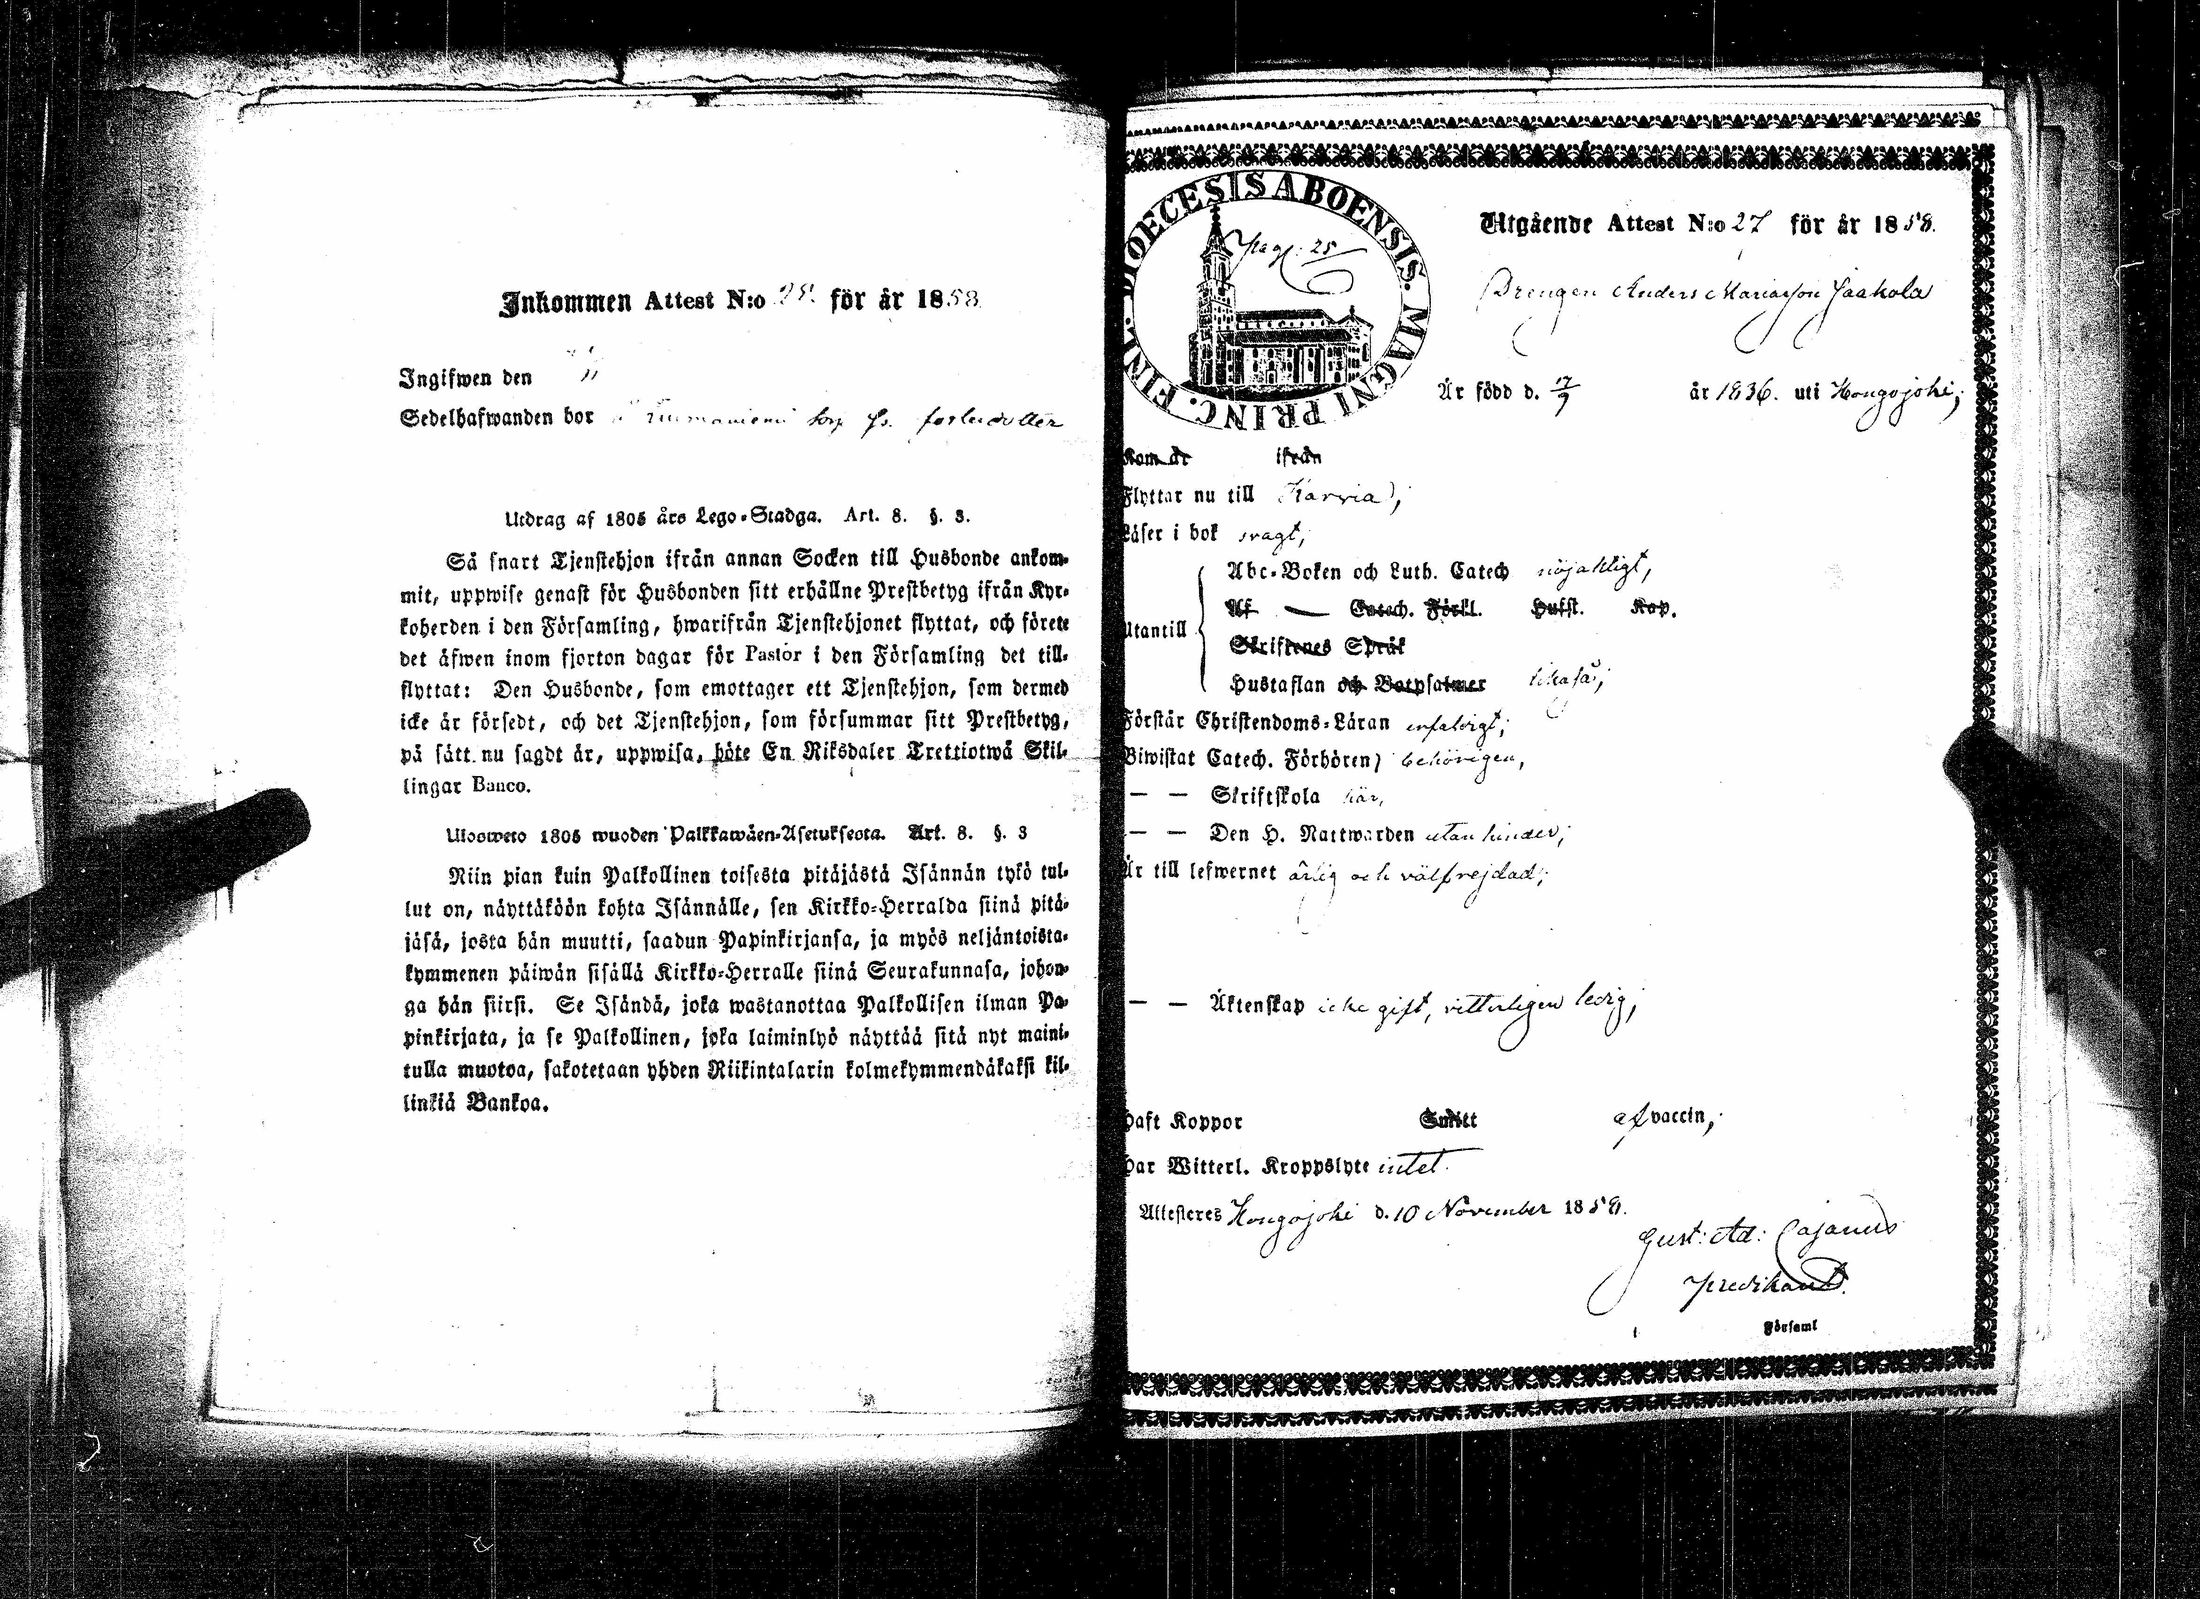 Inkommen Attest N:o för år 1858
Ingifwen den
Sedelhafwanden bor torp
Utdrag af 1805 års Lego-Stadga. Art. 8. §. 3.
Så snart Tjenstehjon ifrån annan Socken till Husbonde ankom-
mit, uppwise genast för Husbonden sitt erhållne Prestbetyg ifrån Kyr-
koherden i den Församling, hwarifrån Tjenstehjonet flyttat, och förete
det äfwen inom fjorton dagar för Pastor i den Församling det till-
flyttat: Den Husbonde, som emottager ett Tjenstehjon, som dermed
icke är försedt, och det Tjenstehjon, som försummar sitt Prestbetyg,
på sätt nu sagdt är, uppwisa, böte En Riksdaler Trettiotwå Skil-
lingar Banco.
Ulosweto 1805 wuoden Palkkawäen-Asetuksesta. Art. 8. §. 3
Niin pian kuin Palkollinen toisesta pitäjästä Isännän tykö tul-
lut on, näyttäköön kohta Isännälle, sen Kirkko-Herralda siinä pitä-
jäsä, josta hän muutti, saadun Papinkirjansa, ja myös neljäntoista-
kymmenen päiwän sisällä Kirkko-Herralle siinä Seurakunnasa, johon-
ga hän siirsi. Se Isändä, joka wastanottaa Palkollisen ilman Pa-
pinkirjata, ja se Palkollinen, joka laiminlyö näyttää sitä nyt maini-
tulla muotoa, sakotetaan yhden Riikintalarin kolmekymmendäkaksi kil-
linkiä Bankoa.
DIOECESIS ABOENSIS. MAGNI PRINC. FINL.
pag. 25
Utgående Attest N:o 27 för år 1858.
Drengen Anders Mariasson Jaakola
Är född d. 17/9 år 1836. uti Hongojoki;
Kom år ifrån
Flyttar nu till Karvia;
Läser i bok svagt;
Utantill
Abc-Boken och Luth. Catech nöjaktigt,
Af Catech. Förkl. Husft. Kap.
Skriftenes Språk
Hustaflan och Botpsalmer likaså;
Förstår Christendoms-Läran enfaldigt;
Biwistat Catech. Förhören behörigen,
— — Skriftskola här,
— — Den H. Nattwarden utan hinder;
Är till lefwernet ärlig och välfrejdad;
— — Äktenskap icke gift, vitterligen ledig;
Haft Koppor Smitt af vaccin;
Har Witterl. Kroppslyte intet.
Attesteres Hongojoki d. 10 November 1858.
Gust: Ad: Cajanus
predikant.
Församl